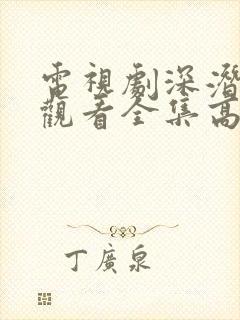 電視劇深潛
觀看全集高
丁廣泉